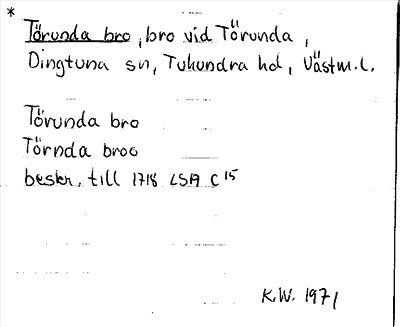 *
Törunda bro, bro vid Törunda,
Dingtuna sn, Tuhundra hd, Västm.l.
Törunda bro
Törnda broo
beskr. till 1718 LSA C 15
K.W. 1971